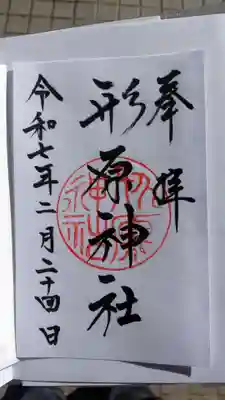 奉拝
形原神社
令和七年二月二十四日
形原神社